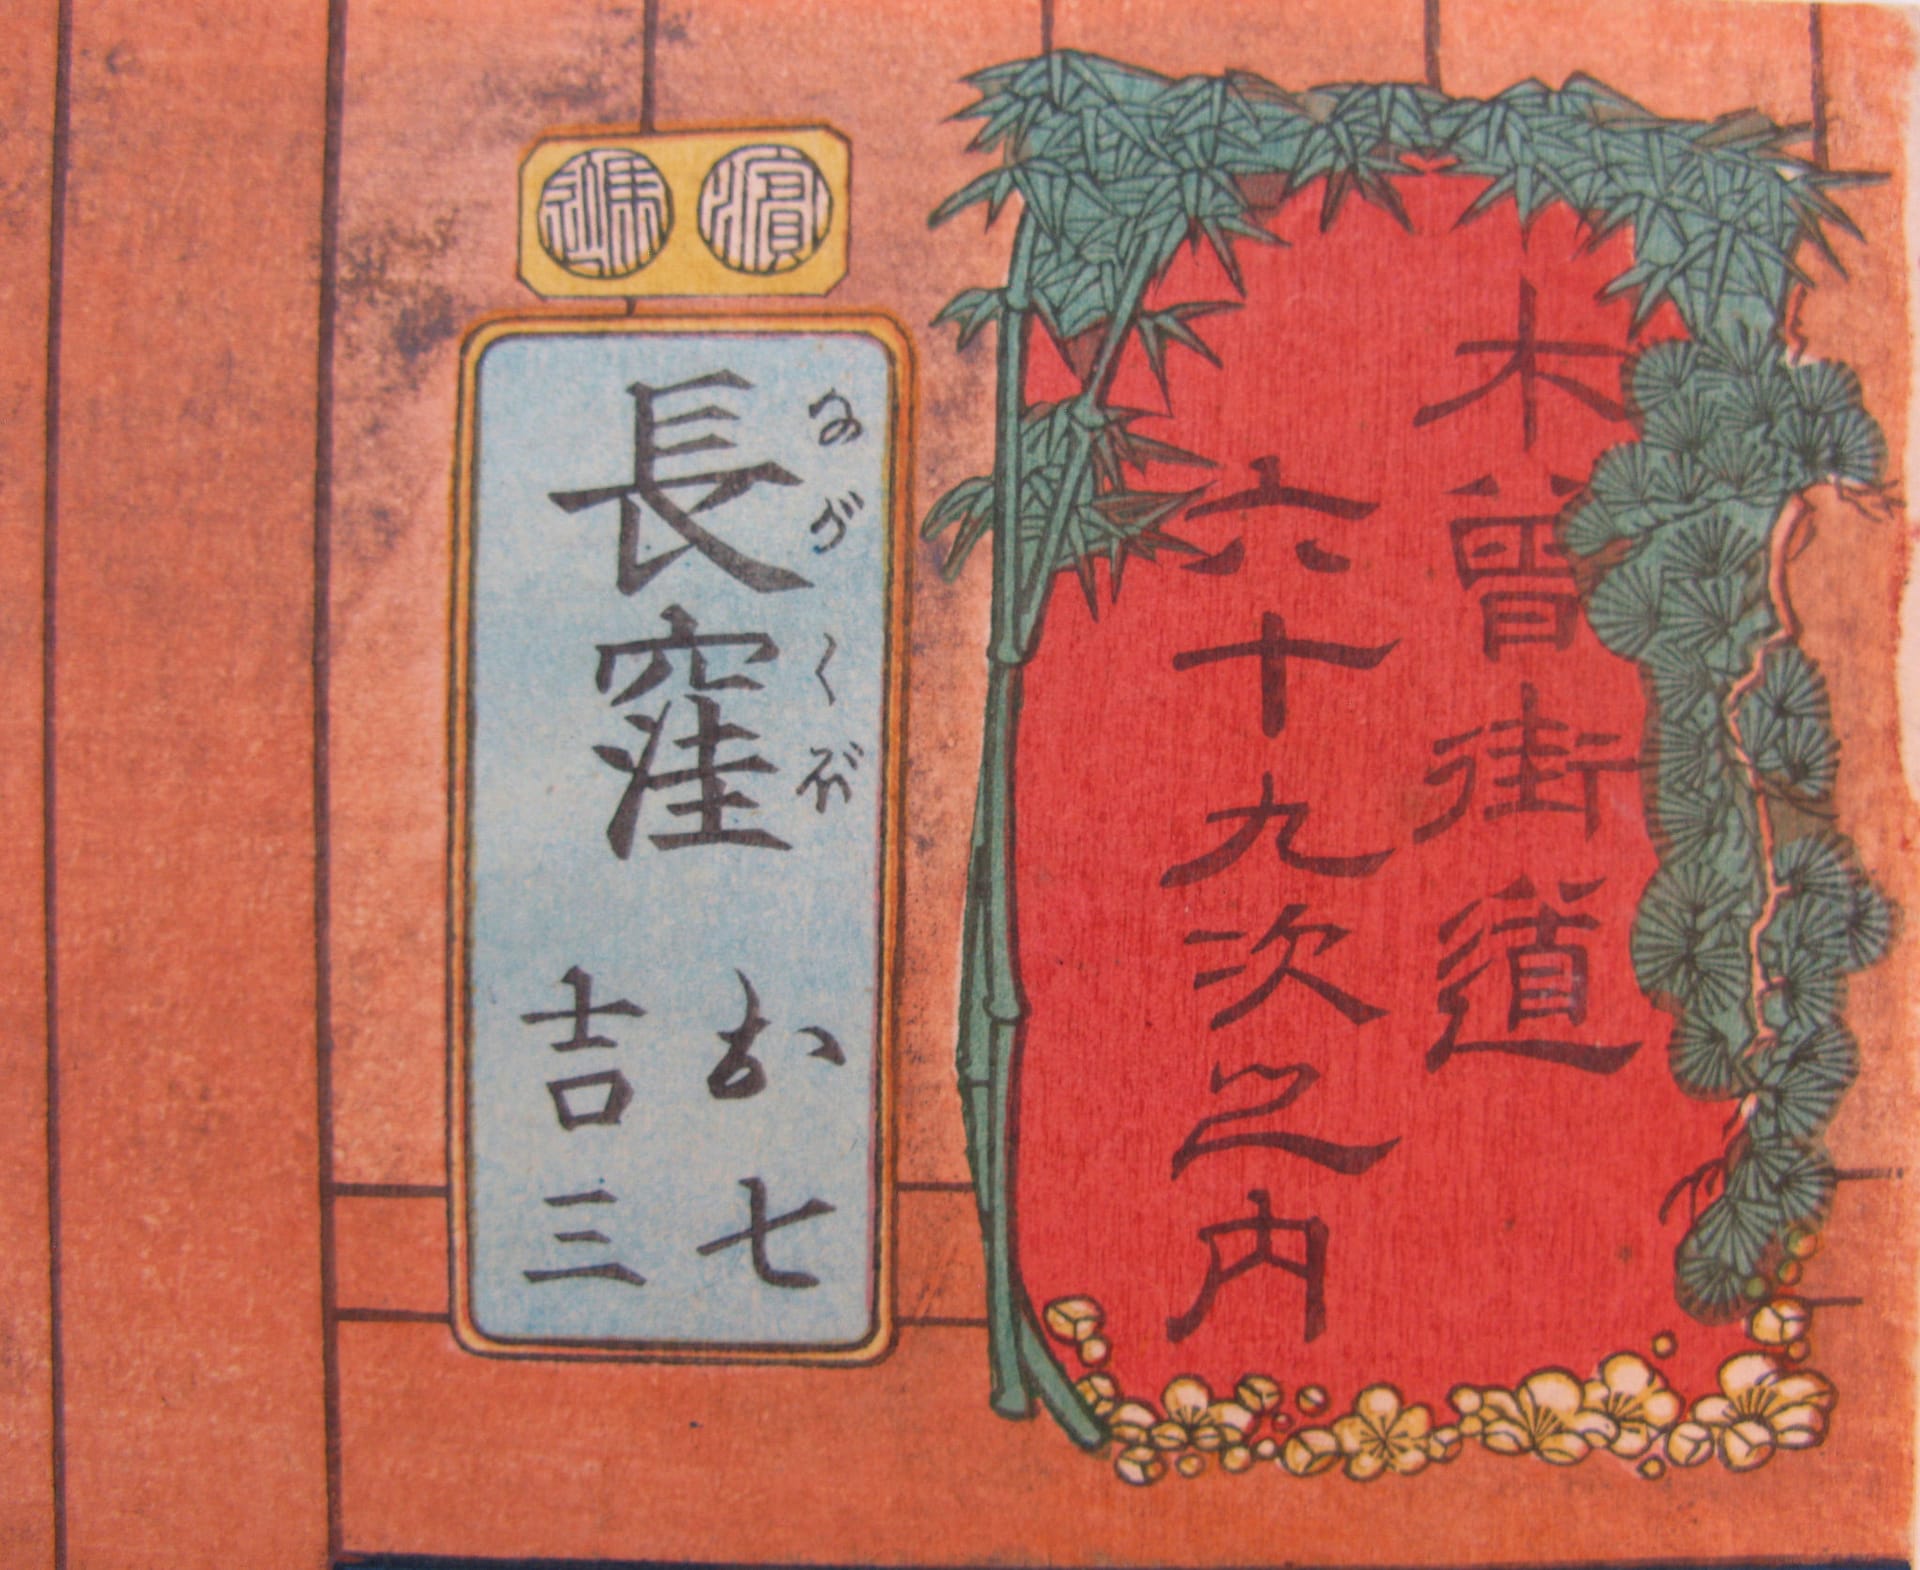 木曽街道
六十九次之内
長窪
ながくぼ
お七
吉三